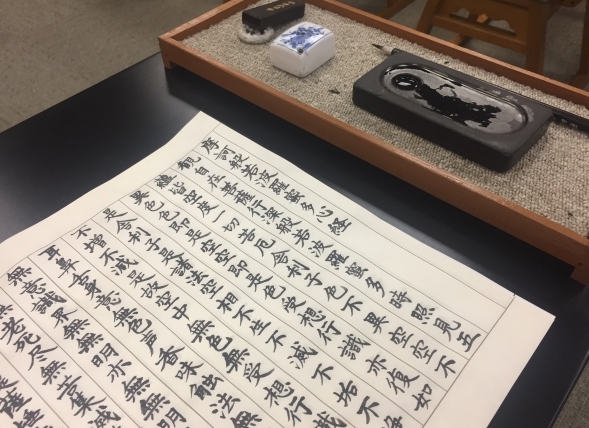 摩訶般若波羅蜜多心経
観自在菩薩行深般若波羅蜜多時照見五
蘊皆空度一切苦厄舎利子色不異空空不
異色色即是空空即是色受想行識亦復如
是舎利子是諸法空相不生不滅不垢不浄
不増不減是故空中無色無受想行識
耳鼻舌身意無色声香味触法無
無意識界無無明亦無無明
無老死尽無苦集滅
提薩埵